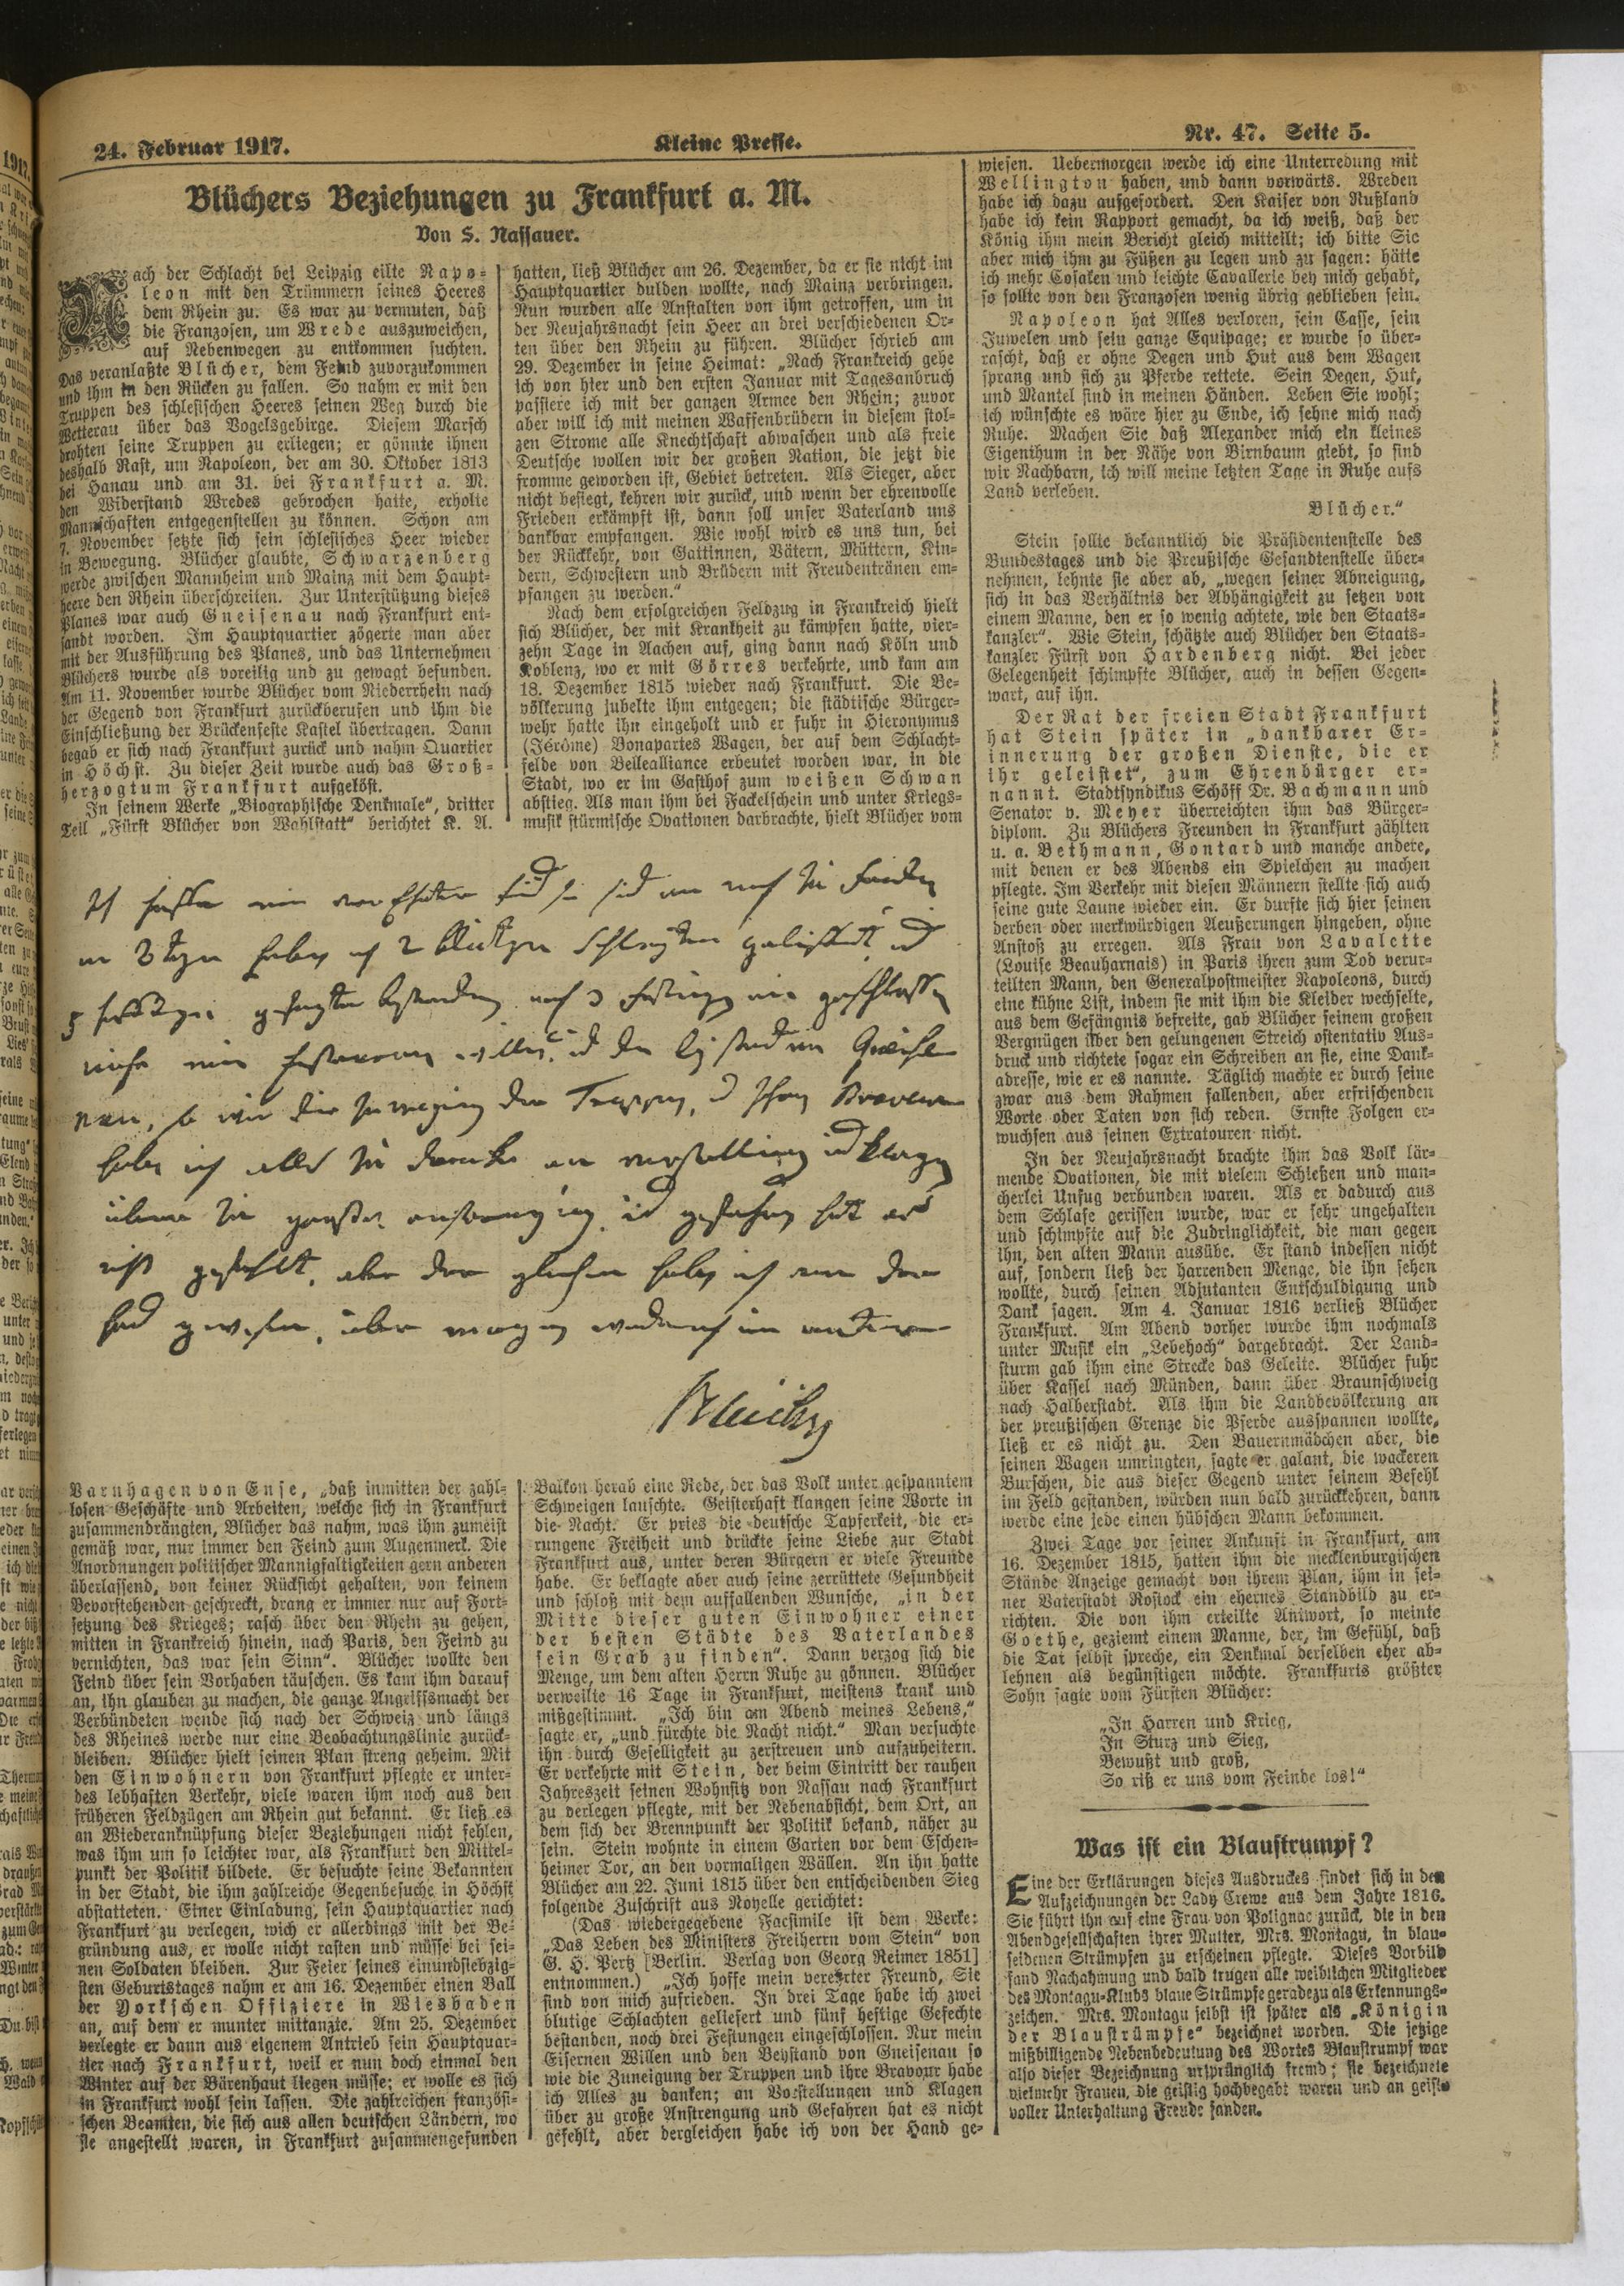 24. Februar 1917.
Kleine Presse.
Nr. 47. Seite 5.
Blüchers Beziehungen zu Frankfurt a. M.
Von S. Nassauer.
Nach der Schlacht bei Leipzig eilte Napo-
leon mit den Trümmern seines Heeres
dem Rhein zu. Es war zu vermuten, daß
die Franzosen, um Wrede auszuweichen,
auf Nebenwegen zu entkommen suchten.
Das veranlaßte Blücher, dem Feind zuvorzukommen
und ihm in den Rücken zu fallen. So nahm er mit den
Truppen des schlesischen Heeres seinen Weg durch die
Wetterau über das Vogelsgebirge. Diesem Marsch
drohten seine Truppen zu erliegen; er gönnte ihnen
deshalb Rast, um Napoleon, der am 30. Oktober 1813
bei Hanau und am 31. bei Frankfurt a. M.
den Widerstand Wredes gebrochen hatte, erholte
Mannschaften entgegenstellen zu können. Schon am
7. November setzte sich sein schlesisches Heer wieder
in Bewegung. Blücher glaubte, Schwarzenberg
werde zwischen Mannheim und Mainz mit dem Haupt-
heere den Rhein überschreiten. Zur Unterstützung dieses
Planes war auch Gneisenau nach Frankfurt ent-
sandt worden. Im Hauptquartier zögerte man aber
mit der Ausführung des Planes, und das Unternehmen
Blüchers wurde als voreilig und zu gewagt befunden.
Am 11. November wurde Blücher vom Niederrhein nach
der Gegend von Frankfurt zurückberufen und ihm die
Einschließung der Brückenfeste Kastel übertragen. Dann
begab er sich nach Frankfurt zurück und nahm Quartier
in Höchst. Zu dieser Zeit wurde auch das Groß-
herzogtum Frankfurt aufgelöst.
In seinem Werke „Biographische Denkmale“, dritter
Teil „Fürst Blücher von Wahlstatt“ berichtet K. A.
Varnhagen von Ense, „daß inmitten der zahl-
losen Geschäfte und Arbeiten, welche sich in Frankfurt
zusammendrängten, Blücher das nahm, was ihm zumeist
gemäß war, nur immer den Feind zum Augenmerk. Die
Anordnungen politischer Mannigfaltigkeiten gern anderen
überlassend, von keiner Rücksicht gehalten, von keinem
Bevorstehenden geschreckt, drang er immer nur auf Fort-
setzung des Krieges; rasch über den Rhein zu gehen,
mitten in Frankreich hinein, nach Paris, den Feind zu
vernichten, das war sein Sinn“. Blücher wollte den
Feind über sein Vorhaben täuschen. Es kam ihm darauf
an, ihn glauben zu machen, die ganze Angriffsmacht der
Verbündeten wende sich nach der Schweiz und längs
des Rheines werde nur eine Beobachtungslinie zurück-
bleiben. Blücher hielt seinen Plan streng geheim. Mit
den Einwohnern von Frankfurt pflegte er unter-
des lebhaften Verkehr, viele waren ihm noch aus den
früheren Feldzügen am Rhein gut bekannt. Er ließ es
an Wiederanknüpfung dieser Beziehungen nicht fehlen,
was ihm um so leichter war, als Frankfurt den Mittel-
punkt der Politik bildete. Er besuchte seine Bekannten
in der Stadt, die ihm zahlreiche Gegenbesuche in Höchst
abstatteten. Einer Einladung, sein Hauptquartier nach
Frankfurt zu verlegen, wich er allerdings mit der Be-
gründung aus, er wolle nicht rasten und müsse bei sei-
nen Soldaten bleiben. Zur Feier seines einundsiebzig-
sten Geburtstages nahm er am 16. Dezember einen Ball
der Yorkschen Offiziere in Wiesbaden
an, auf dem er munter mittanzte. Am 25. Dezember
verlegte er dann aus eigenem Antrieb sein Hauptquar-
tier nach Frankfurt, weil er nun doch einmal den
Winter auf der Bärenhaut liegen müsse; er wolle es sich
in Frankfurt wohl sein lassen. Die zahlreichen französi-
schen Beamten, die sich aus allen deutschen Ländern, wo
sie angestellt waren, in Frankfurt zusammengefunden
hatten, ließ Blücher am 26. Dezember, da er sie nicht im
Hauptquartier dulden wollte, nach Mainz verbringen.
Nun wurden alle Anstalten von ihm getroffen, um in
der Neujahrsnacht sein Heer an drei verschiedenen Or-
ten über den Rhein zu führen. Blücher schrieb am
29. Dezember in seine Heimat: „Nach Frankreich gehe
ich von hier und den ersten Januar mit Tagesanbruch
passiere ich mit der ganzen Armee den Rhein; zuvor
aber will ich mit meinen Waffenbrüdern in diesem stol-
zen Strome alle Knechtschaft abwaschen und als freie
Deutsche wollen wir der großen Nation, die jetzt die
fromme geworden ist, Gebiet betreten. Als Sieger, aber
nicht besiegt, kehren wir zurück, und wenn der ehrenvolle
Frieden erkämpft ist, dann soll unser Vaterland uns
dankbar empfangen. Wie wohl wird es uns tun, bei
der Rückkehr, von Gattinnen, Vätern, Müttern, Kin-
dern, Schwestern und Brüdern mit Freudentränen em-
pfangen zu werden.“
Nach dem erfolgreichen Feldzug in Frankreich hielt
sich Blücher, der mit Krankheit zu kämpfen hatte, vier-
zehn Tage in Aachen auf, ging dann nach Köln und
Koblenz, wo er mit Görres verkehrte, und kam am
18. Dezember 1815 wieder nach Frankfurt. Die Be-
völkerung jubelte ihm entgegen; die städtische Bürger-
wehr hatte ihn eingeholt und er fuhr in Hieronymus
(Jérôme) Bonapartes Wagen, der auf dem Schlacht-
felde von Bellealliance erbeutet worden war, in die
Stadt, wo er im Gasthof zum weißen Schwan
abstieg. Als man ihm bei Fackelschein und unter Kriegs-
musik stürmische Ovationen darbrachte, hielt Blücher vom
Balkon herab eine Rede, der das Volk unter gespanntem
Schweigen lauschte. Geisterhaft klangen seine Worte in
die Nacht. Er pries die deutsche Tapferkeit, die er-
rungene Freiheit und drückte seine Liebe zur Stadt
Frankfurt aus, unter deren Bürgern er viele Freunde
habe. Er beklagte aber auch seine zerrüttete Gesundheit
und schloß mit dem auffallenden Wunsche, „in der
Mitte dieser guten Einwohner einer
der besten Städte des Vaterlandes
sein Grab zu finden“. Dann verzog sich die
Menge, um dem alten Herrn Ruhe zu gönnen. Blücher
verweilte 16 Tage in Frankfurt, meistens krank und
mißgestimmt. „Ich bin am Abend meines Lebens,“
sagte er, „und fürchte die Nacht nicht.“ Man versuchte
ihn durch Geselligkeit zu zerstreuen und aufzuheitern.
Er verkehrte mit Stein, der beim Eintritt der rauhen
Jahreszeit seinen Wohnsitz von Nassau nach Frankfurt
zu verlegen pflegte, mit der Nebenabsicht, dem Ort, an
dem sich der Brennpunkt der Politik befand, näher zu
sein. Stein wohnte in einem Garten vor dem Eschen-
heimer Tor, an den vormaligen Wällen. An ihn hatte
Blücher am 22. Juni 1815 über den entscheidenden Sieg
folgende Zuschrift aus Noyelle gerichtet:
(Das wiedergegebene Facsimile ist dem Werke:
„Das Leben des Ministers Freiherrn vom Stein“ von
G. H. Pertz [Berlin. Verlag von Georg Reimer 1851]
entnommen.) „Ich hoffe mein verehrter Freund, Sie
sind von mich zufrieden. In drei Tage habe ich zwei
blutige Schlachten geliefert und fünf heftige Gefechte
bestanden, noch drei Festungen eingeschlossen. Nur mein
Eisernen Willen und den Beystand von Gneisenau so
wie die Zuneigung der Truppen und ihre Bravour habe
ich Alles zu danken; an Vorstellungen und Klagen
über zu große Anstrengung und Gefahren hat es nicht
gefehlt, aber dergleichen habe ich von der Hand ge-
wiesen. Uebermorgen werde ich eine Unterredung mit
Wellington haben, und dann vorwärts. Wreden
habe ich dazu aufgefordert. Den Kaiser von Rußland
habe ich kein Rapport gemacht, da ich weiß, daß der
König ihm mein Bericht gleich mitteilt; ich bitte Sie
aber mich ihm zu Füßen zu legen und zu sagen: hätte
ich mehr Cosaken und leichte Cavallerie bey mich gehabt,
so sollte von den Franzosen wenig übrig geblieben sein.
Napoleon hat Alles verloren, sein Casse, sein
Juwelen und sein ganze Equipage; er wurde so über-
rascht, daß er ohne Degen und Hut aus dem Wagen
sprang und sich zu Pferde rettete. Sein Degen, Hut,
und Mantel sind in meinen Händen. Leben Sie wohl;
ich wünschte es wäre hier zu Ende, ich sehne mich nach
Ruhe. Machen Sie daß Alexander mich ein kleines
Eigenthum in der Nähe von Birnbaum giebt, so sind
wir Nachbarn, ich will meine letzten Tage in Ruhe aufs
Land verleben.
Blücher.“
Stein sollte bekanntlich die Präsidentenstelle des
Bundestages und die Preußische Gesandtenstelle über-
nehmen, lehnte sie aber ab, „wegen seiner Abneigung,
sich in das Verhältnis der Abhängigkeit zu setzen von
einem Manne, den er so wenig achtete, wie den Staats-
kanzler“. Wie Stein, schätzte auch Blücher den Staats-
kanzler Fürst von Hardenberg nicht. Bei jeder
Gelegenheit schimpfte Blücher, auch in dessen Gegen-
wart, auf ihn.
Der Rat der freien Stadt Frankfurt
hat Stein später in „dankbarer Er-
innerung der großen Dienste, die er
ihr geleistet“, zum Ehrenbürger er-
nannt. Stadtsyndikus Schöff Dr. Bachmann und
Senator v. Meyer überreichten ihm das Bürger-
diplom. Zu Blüchers Freunden in Frankfurt zählten
u. a. Bethmann, Gontard und manche andere,
mit denen er des Abends ein Spielchen zu machen
pflegte. Im Verkehr mit diesen Männern stellte sich auch
seine gute Laune wieder ein. Er durfte sich hier seinen
derben oder merkwürdigen Aeußerungen hingeben, ohne
Anstoß zu erregen. Als Frau von Lavalette
(Louise Beauharnais) in Paris ihren zum Tod verur-
teilten Mann, den Generalpostmeister Napoleons, durch
eine kühne List, indem sie mit ihm die Kleider wechselte,
aus dem Gefängnis befreite, gab Blücher seinem großen
Vergnügen über den gelungenen Streich ostentativ Aus-
druck und richtete sogar ein Schreiben an sie, eine Dank-
adresse, wie er es nannte. Täglich machte er durch seine
zwar aus dem Rahmen fallenden, aber erfrischenden
Worte oder Taten von sich reden. Ernste Folgen er-
wuchsen aus seinen Extratouren nicht.
In der Neujahrsnacht brachte ihm das Volk lär-
mende Ovationen, die mit vielem Schießen und man-
cherlei Unfug verbunden waren. Als er dadurch aus
dem Schlafe gerissen wurde, war er sehr ungehalten
und schimpfte auf die Zudringlichkeit, die man gegen
ihn, den alten Mann ausübe. Er stand indessen nicht
auf, sondern ließ der harrenden Menge, die ihn sehen
wollte, durch seinen Adjutanten Entschuldigung und
Dank sagen. Am 4. Januar 1816 verließ Blücher
Frankfurt. Am Abend vorher wurde ihm nochmals
unter Musik ein „Lebehoch“ dargebracht. Der Land-
sturm gab ihm eine Strecke das Geleite. Blücher fuhr
über Kassel nach Münden, dann über Braunschweig
nach Halberstadt. Als ihm die Landbevölkerung an
der preußischen Grenze die Pferde ausspannen wollte,
ließ er es nicht zu. Den Bauernmädchen aber, die
seinen Wagen umringten, sagte er galant, die wackeren
Burschen, die aus dieser Gegend unter seinem Befehl
im Feld gestanden, würden nun bald zurückkehren, dann
werde eine jede einen hübschen Mann bekommen.
Zwei Tage vor seiner Ankunft in Frankfurt, am
16. Dezember 1815, hatten ihm die mecklenburgischen
Stände Anzeige gemacht von ihrem Plan, ihm in sei-
ner Vaterstadt Rostock ein ehernes Standbild zu er-
richten. Die von ihm erteilte Antwort, so meinte
Goethe, geziemt einem Manne, der, im Gefühl, daß
die Tat selbst spreche, ein Denkmal derselben eher ab-
lehnen als begünstigen möchte. Frankfurts größter
Sohn sagte vom Fürsten Blücher:
„In Harren und Krieg,
In Sturz und Sieg,
Bewußt und groß,
So riß er uns vom Feinde los!“
Was ist ein Blaustrumpf?
Eine der Erklärungen dieses Ausdruckes findet sich in den
Aufzeichnungen der Lady Crewe aus dem Jahre 1816.
Sie führt ihn auf eine Frau von Polignac zurück, die in den
Abendgesellschaften ihrer Mutter, Mrs. Montagu, in blau-
seidenen Strümpfen zu erscheinen pflegte. Dieses Vorbild
fand Nachahmung und bald trugen alle weiblichen Mitglieder
des Montagu-Klubs blaue Strümpfe geradezu als Erkennungs-
zeichen. Mrs. Montagu selbst ist später als „Königin
der Blaustrümpfe“ bezeichnet worden. Die jetzige
mißbilligende Nebenbedeutung des Wortes Blaustrumpf war
also dieser Bezeichnung ursprünglich fremd; sie bezeichnete
vielmehr Frauen, die geistig hochbegabt waren und an geist-
voller Unterhaltung Freude fanden.